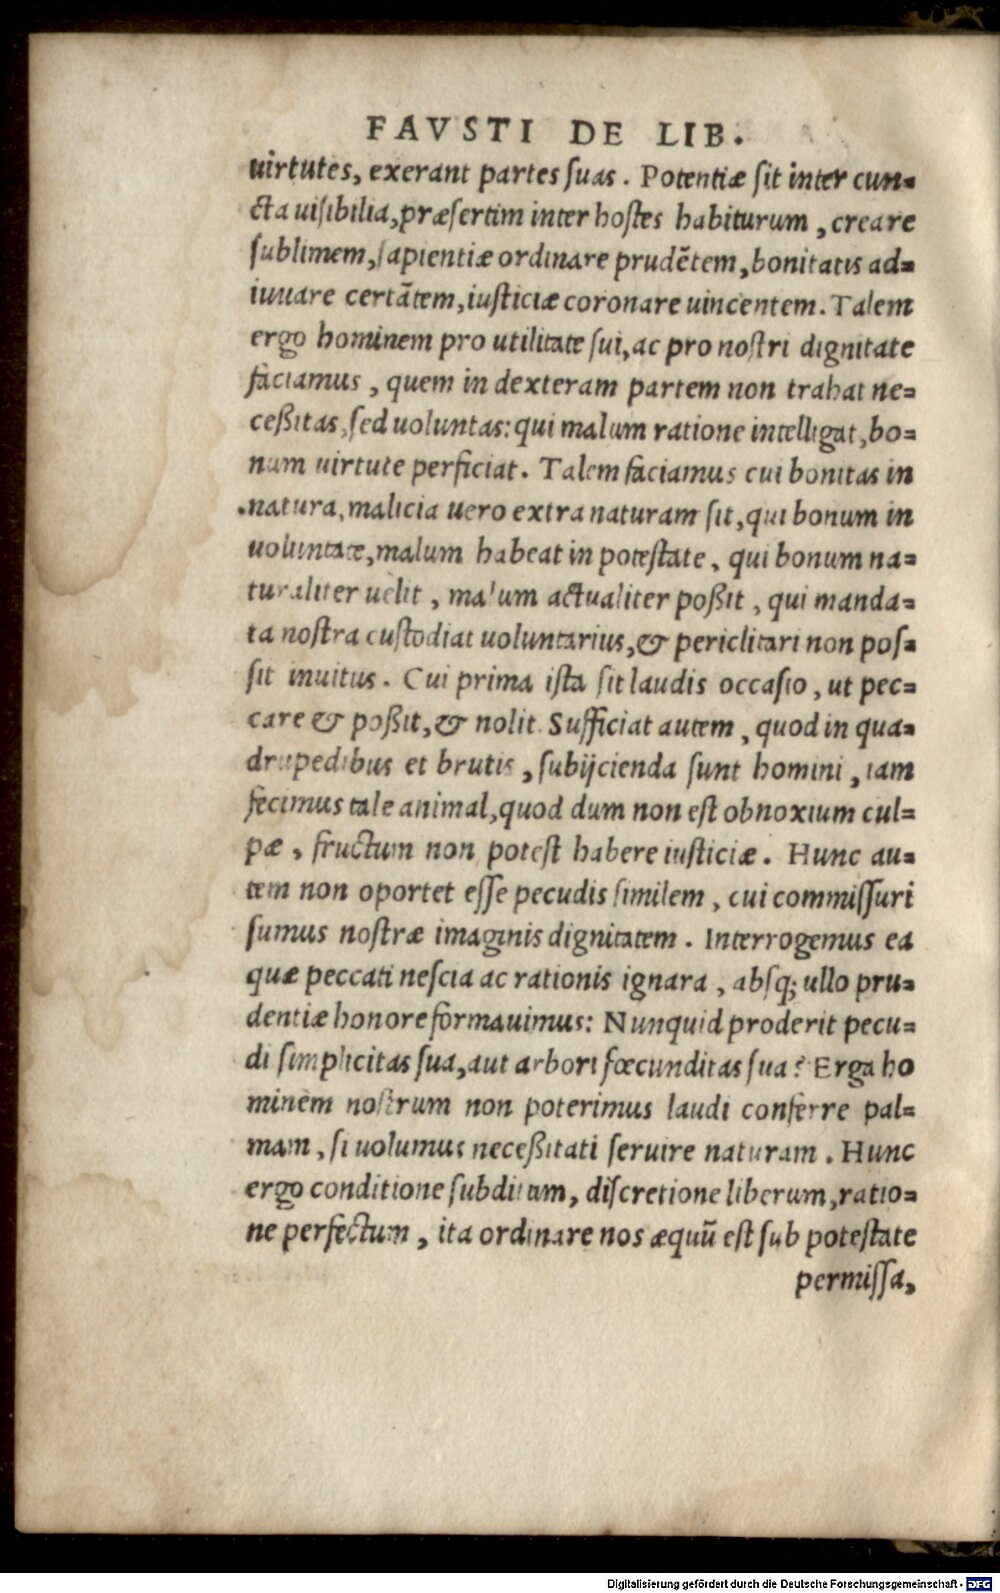 FAVSTI DE LIB.
uirtutes, exerant partes suas. Potentiæ sit inter cun=
cta uisibilia, præsertim inter hostes habiturum, creare
sublimem, sapientiæ ordinare prudẽtem, bonitatis ad=
iuuare certãtem, iusticiæ coronare uincentem. Talem
ergo hominem pro utilitate sui, ac pro nostri dignitate
faciamus, quem in dexteram partem non trahat ne=
ceßitas, sed uoluntas: qui malum ratione intelligat, bo=
num uirtute perficiat. Talem faciamus cui bonitas in
natura, malicia uero extra naturam sit, qui bonum in
uoluntate, malum habeat in potestate, qui bonum na=
turaliter uelit, malum actualiter poßit, qui manda=
ta nostra custodiat uoluntarius, & periclitari non pos=
sit inuitus. Cui prima ista sit laudis occasio, ut pec=
care & poßit, & nolit. Sufficiat autem, quod in qua=
drupedibus et brutis, subijcienda sunt homini, iam
fecimus tale animal, quod dum non est obnoxium cul=
pæ, fructum non potest habere iusticiæ. Hunc au=
tem non oportet esse pecudis similem, cui commissuri
sumus nostræ imaginis dignitatem. Interrogemus ea
quæ peccati nescia ac rationis ignara, absq; ullo pru=
dentiæ honore formauimus: Nunquid proderit pecu=
di simplicitas sua, aut arbori fœcunditas sua? Erga ho
minem nostrum non poterimus laudi conferre pal=
mam, si uolumus neceßitati seruire naturam. Hunc
ergo conditione subditum, discretione liberum, ratio=
ne perfectum, ita ordinare nos æquũ est sub potestate
permissa,
Digitalisierung gefördert durch die Deutsche Forschungsgemeinschaft - DFG